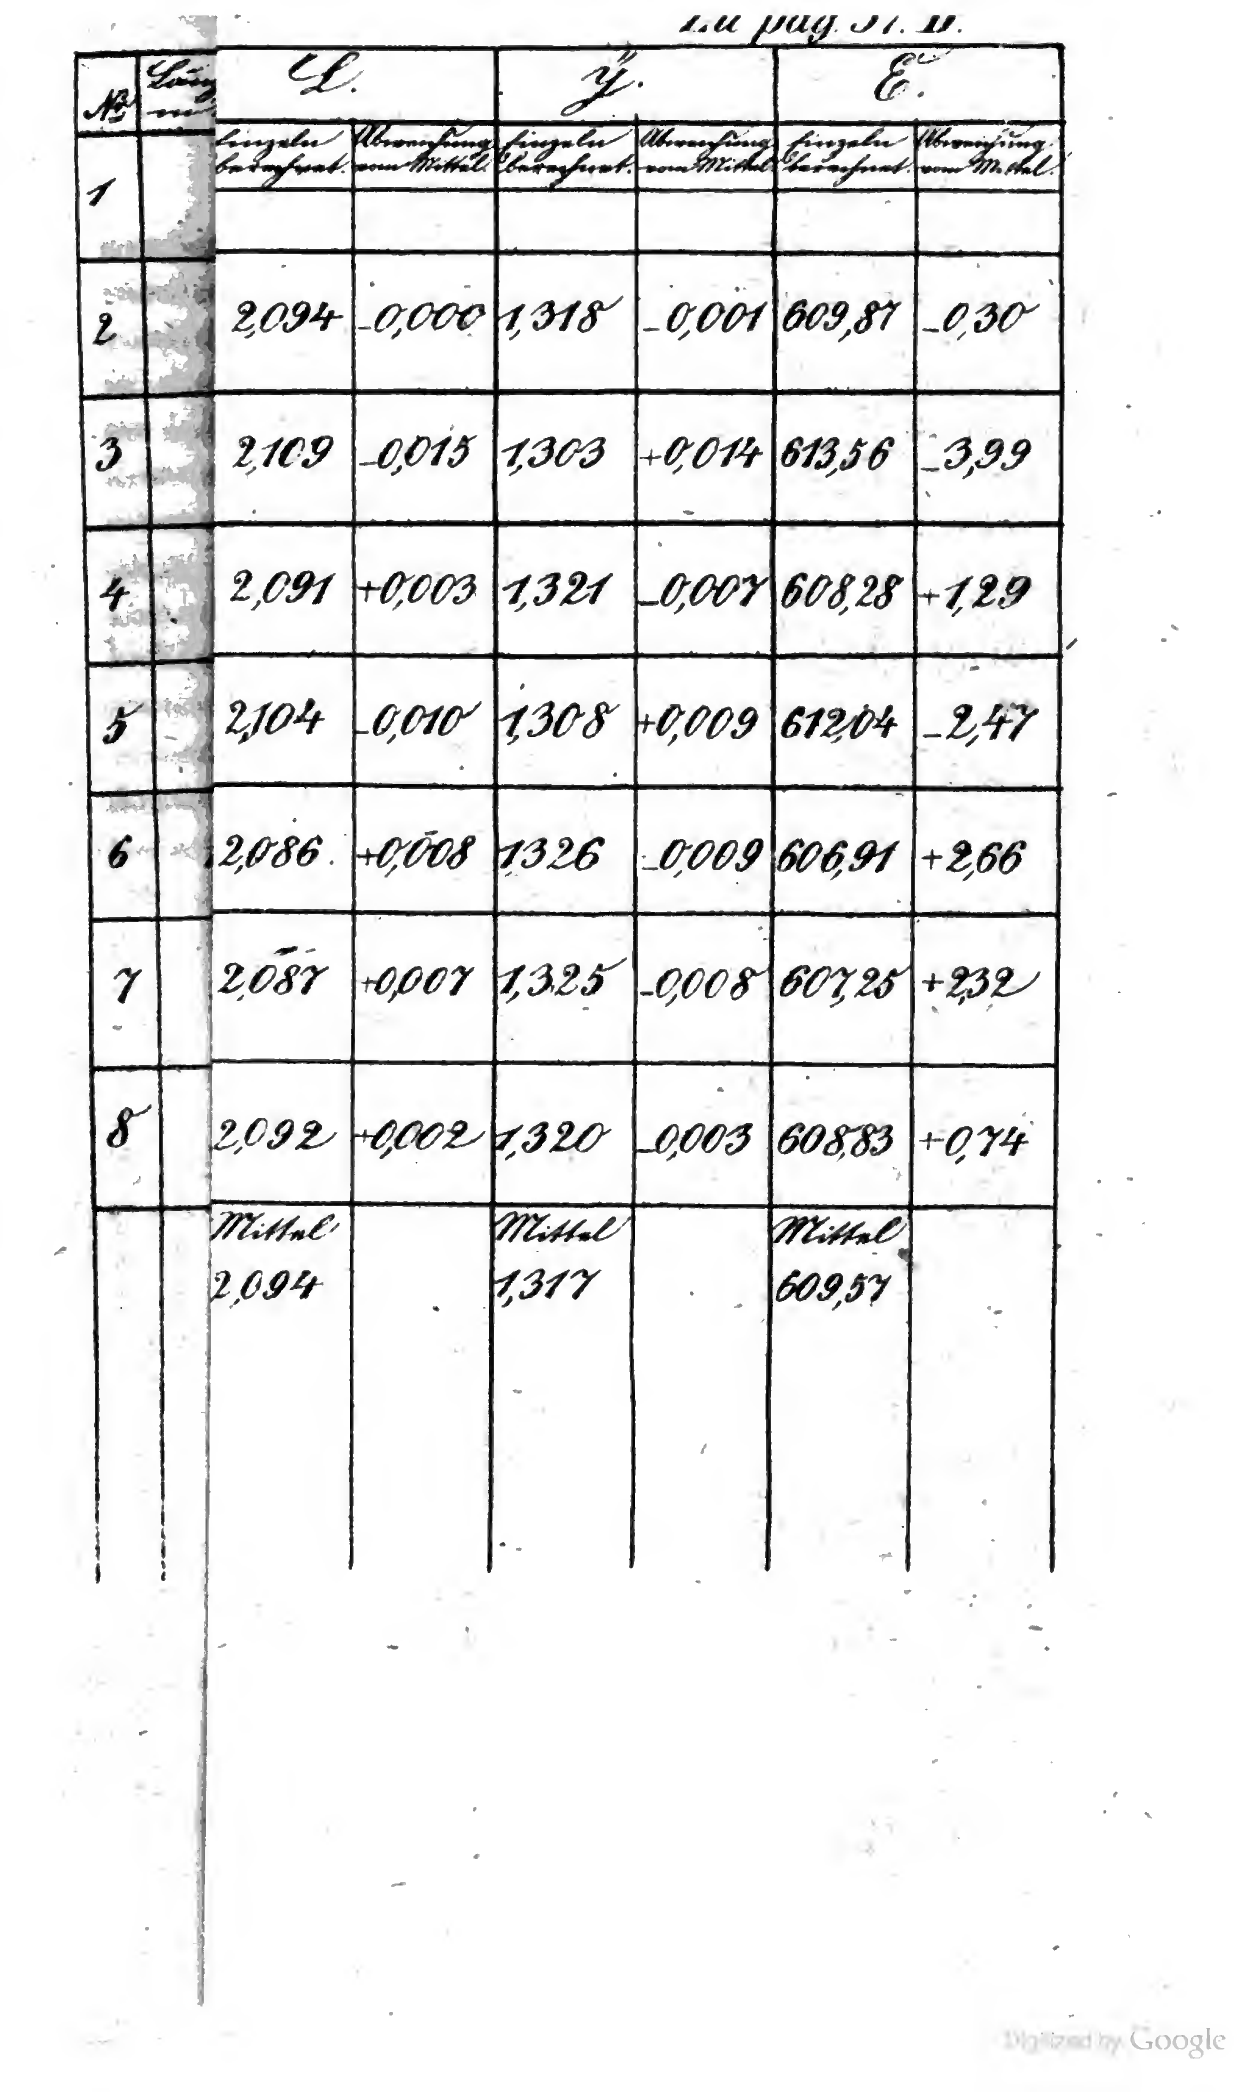 Zu pag. 37. D.
No L. ÿ. E.
Einzeln berechnet. Abweichung vom Mittel. Einzeln berechnet. Abweichung vom Mittel. Einzeln berechnet. Abweichung vom Mittel.
1
2 2,094 -0,000 1,318 -0,001 609,87 -0,30
3 2,109 -0,015 1,303 +0,014 613,56 -3,99
4 2,091 +0,003 1,321 -0,007 608,28 +1,29
5 2,104 -0,010 1,308 +0,009 612,04 -2,47
6 2,086 +0,008 1,326 -0,009 606,91 +2,66
7 2,087 +0,007 1,325 -0,008 607,25 +2,32
8 2,092 +0,002 1,320 -0,003 608,83 +0,74
Mittel Mittel Mittel
2,094 1,317 609,57
Digitized by Google